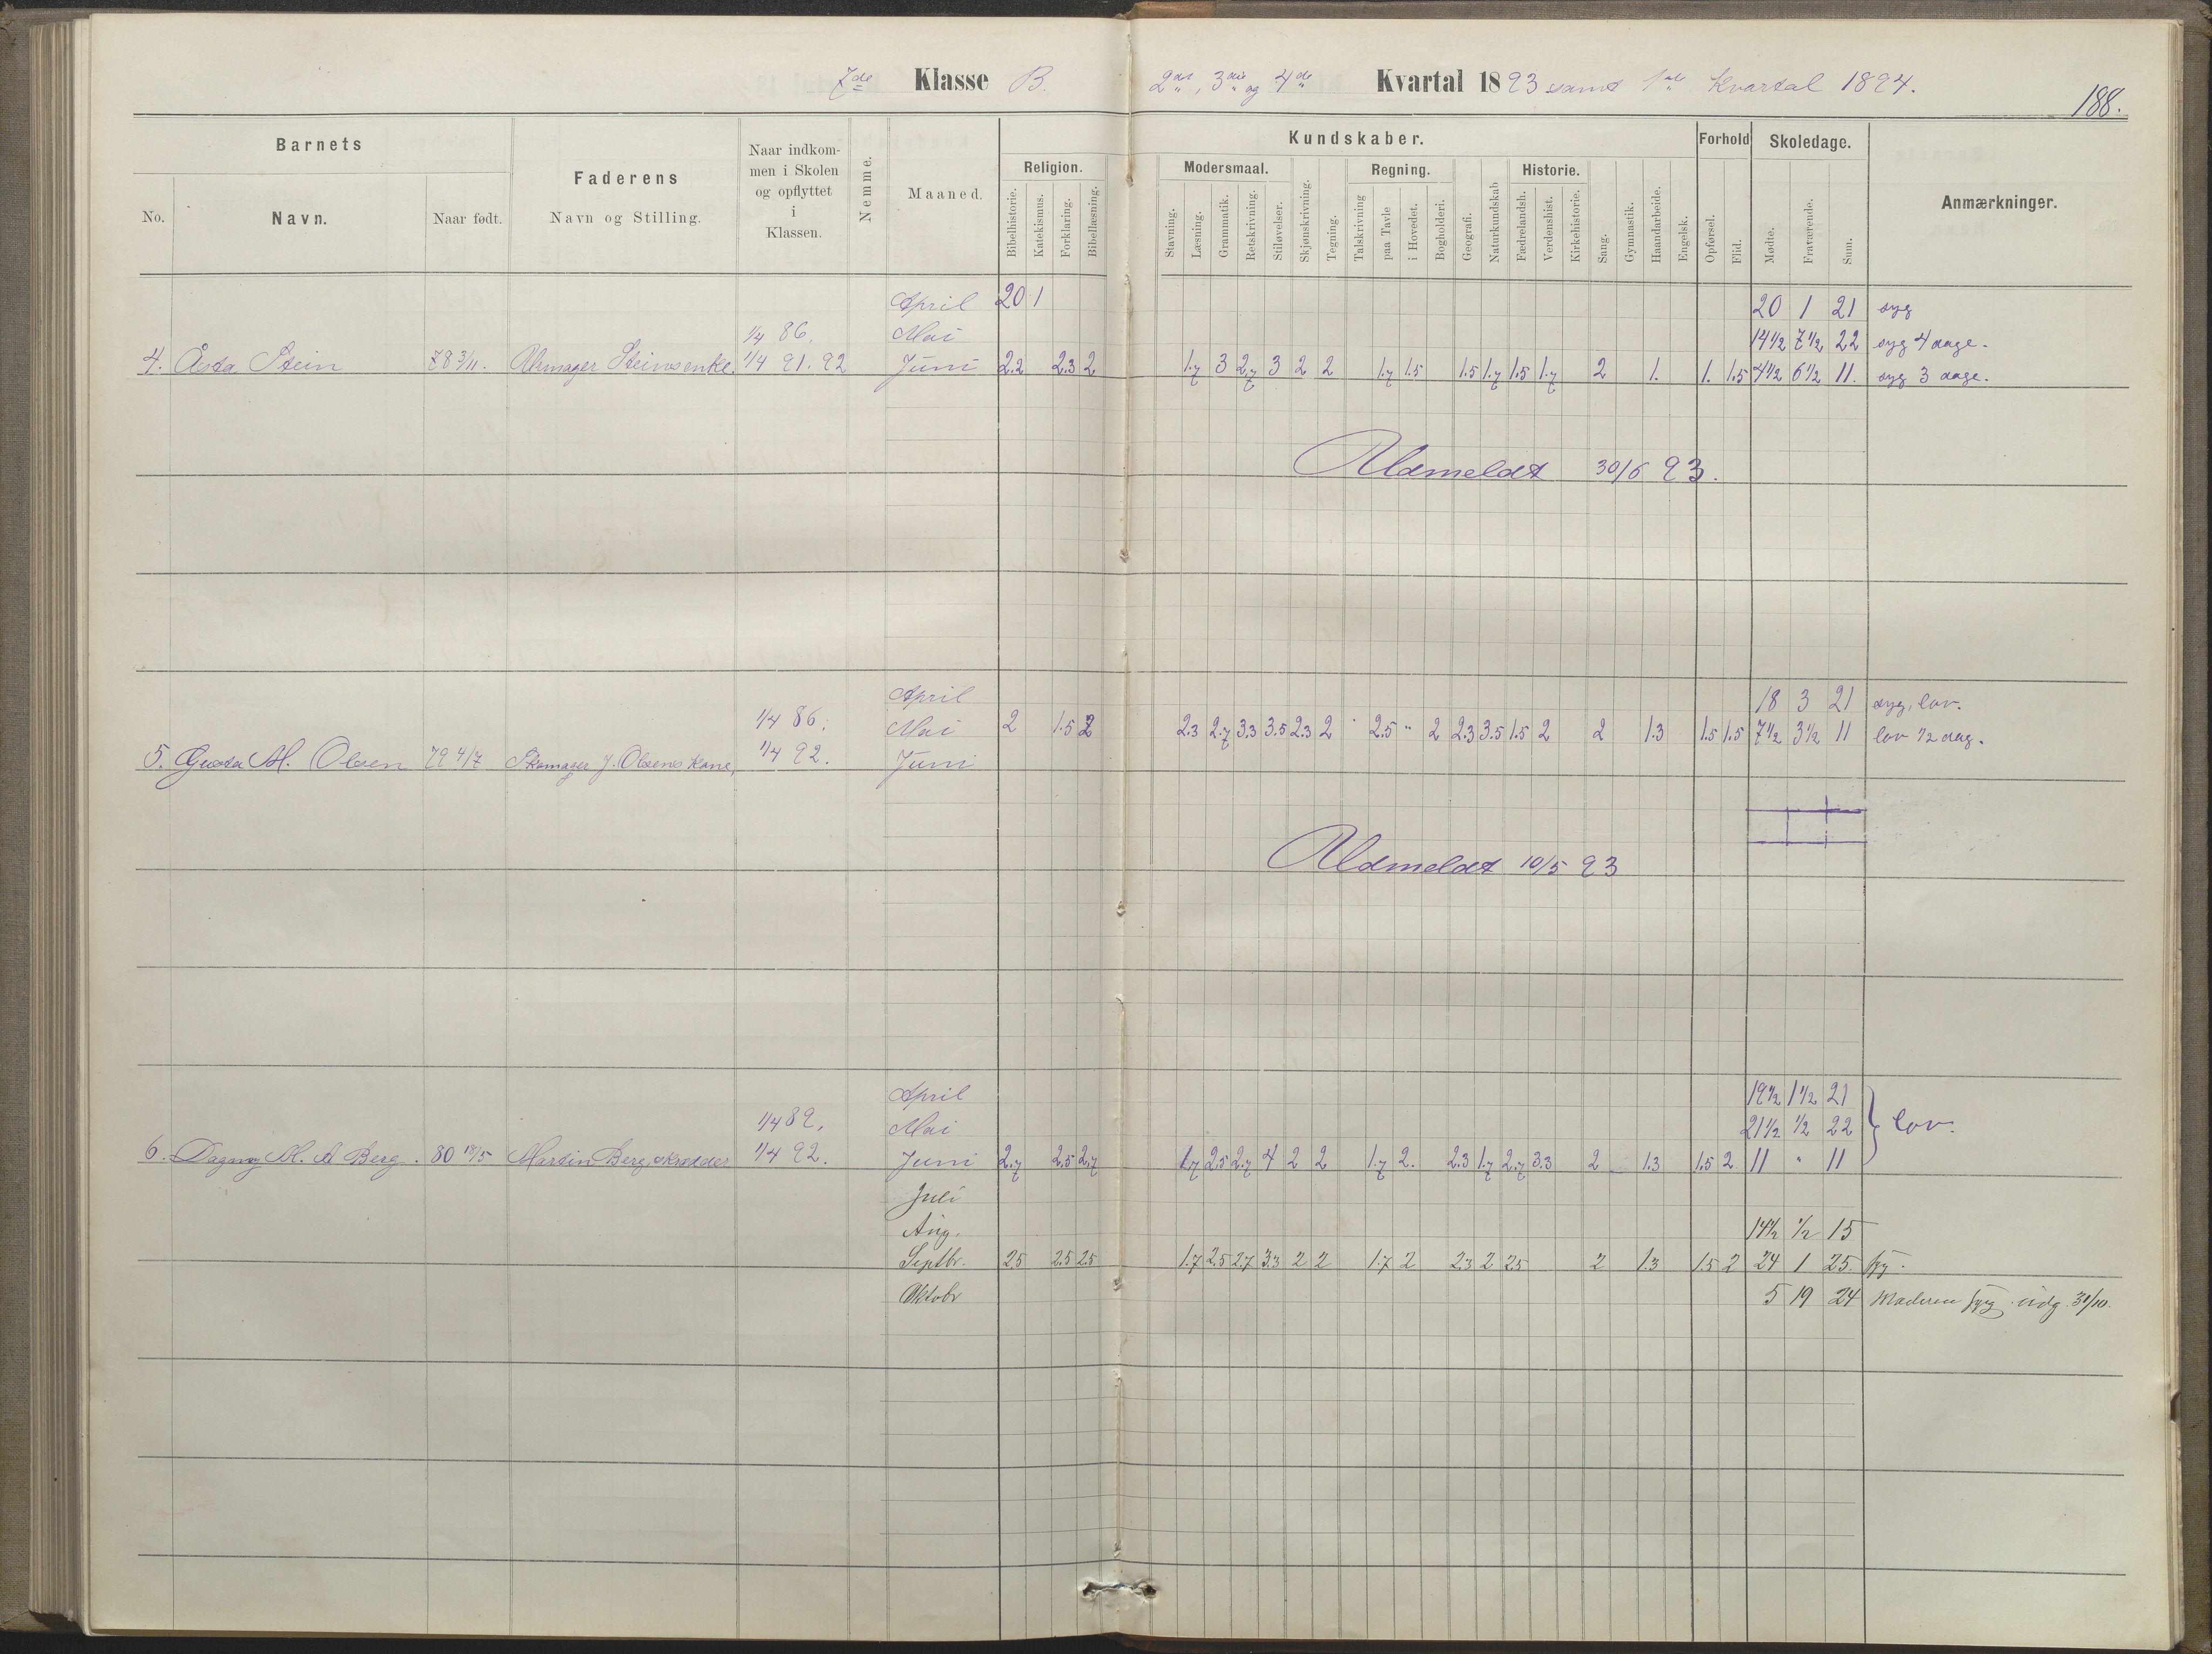 7de Klasse B. 2det, 3die og 4de Kvartal 1893 samt 1ste Kvartal 1894.
188.
Barnets
No. Navn. Naar født.
Faderens
Navn og Stilling.
Naar indkom-
men i Skolen
og opflyttet
i
Klassen.
Nemme.
Maaned.
Kundskaber.
Religion.
Bibelhistorie. Katekismus. Forklaring. Bibellæsning.
Modersmaal.
Stavning. Læsning. Grammatik. Retskrivning. Stiløvelser. Skjønskrivning. Tegning.
Regning.
Talskrivning paa Tavle i Hovedet. Bogholderi. Geografi. Naturkundskab
Historie.
Fædrelandsh. Verdenshist. Kirkehistorie. Sang. Gymnastik. Haandarbeide. Engelsk.
Forhold
Opførsel. Flid.
Skoledage.
Mødte. Fraværende. Sum.
Anmærkninger.
April 20 1 20 1 21 syg
1/4 86. Mai 14 1/2 7 1/2 22 syg 4 dage.
4. Åsta Stein 78 3/11. Uhrmager Steins enke. 1/4 91. 92 Juni 2.2 2.3 2 1.7 3 2.7 3 2 2 1.7 1.5 1.5 1.7 1.5 1.7 2 1. 1. 1.5 4 1/2 6 1/2 11. syg 3 dage.
Udmeldt 30/6 93.
April 18 3 21 syg, lov.
1/4 86. Mai 2 1.5 2 2.3 2.7 3.3 3.5 2.3 2 2.5 " 2 2.3 3.5 1.5 2 2 1.3 1.5 1.5 7 1/2 3 1/2 11 lov 1/2 dag.
5. Gusta M. Olsen 79 4/7 Skomager J. Olsens Kone, 1/4 92. Juni
Udmeldt 10/5 93
April 19 1/2 1 1/2 21
1/4 89. Mai 21 1/2 1/2 22 lov.
6. Dagny M. A Berg. 80 18/5 Martin Berg, skrædder 1/4 92. Juni 2.7 2.5 2.7 1.7 2.5 2.7 4 2 2 1.7 2. 2.3 1.7 2.7 3.3 2 1.3 1.5 2 11 " 11
Juli
Aug. 14 1/2 1/2 15
Septbr. 2.5 2.5 2.5 1.7 2.5 2.7 3.3 2 2 1.7 2 2.3 2 2.5 2 1.3 1.5 2 24 1 25. syg.
Oktobr 5 19 24 Moderen syg. udg. 31/10.